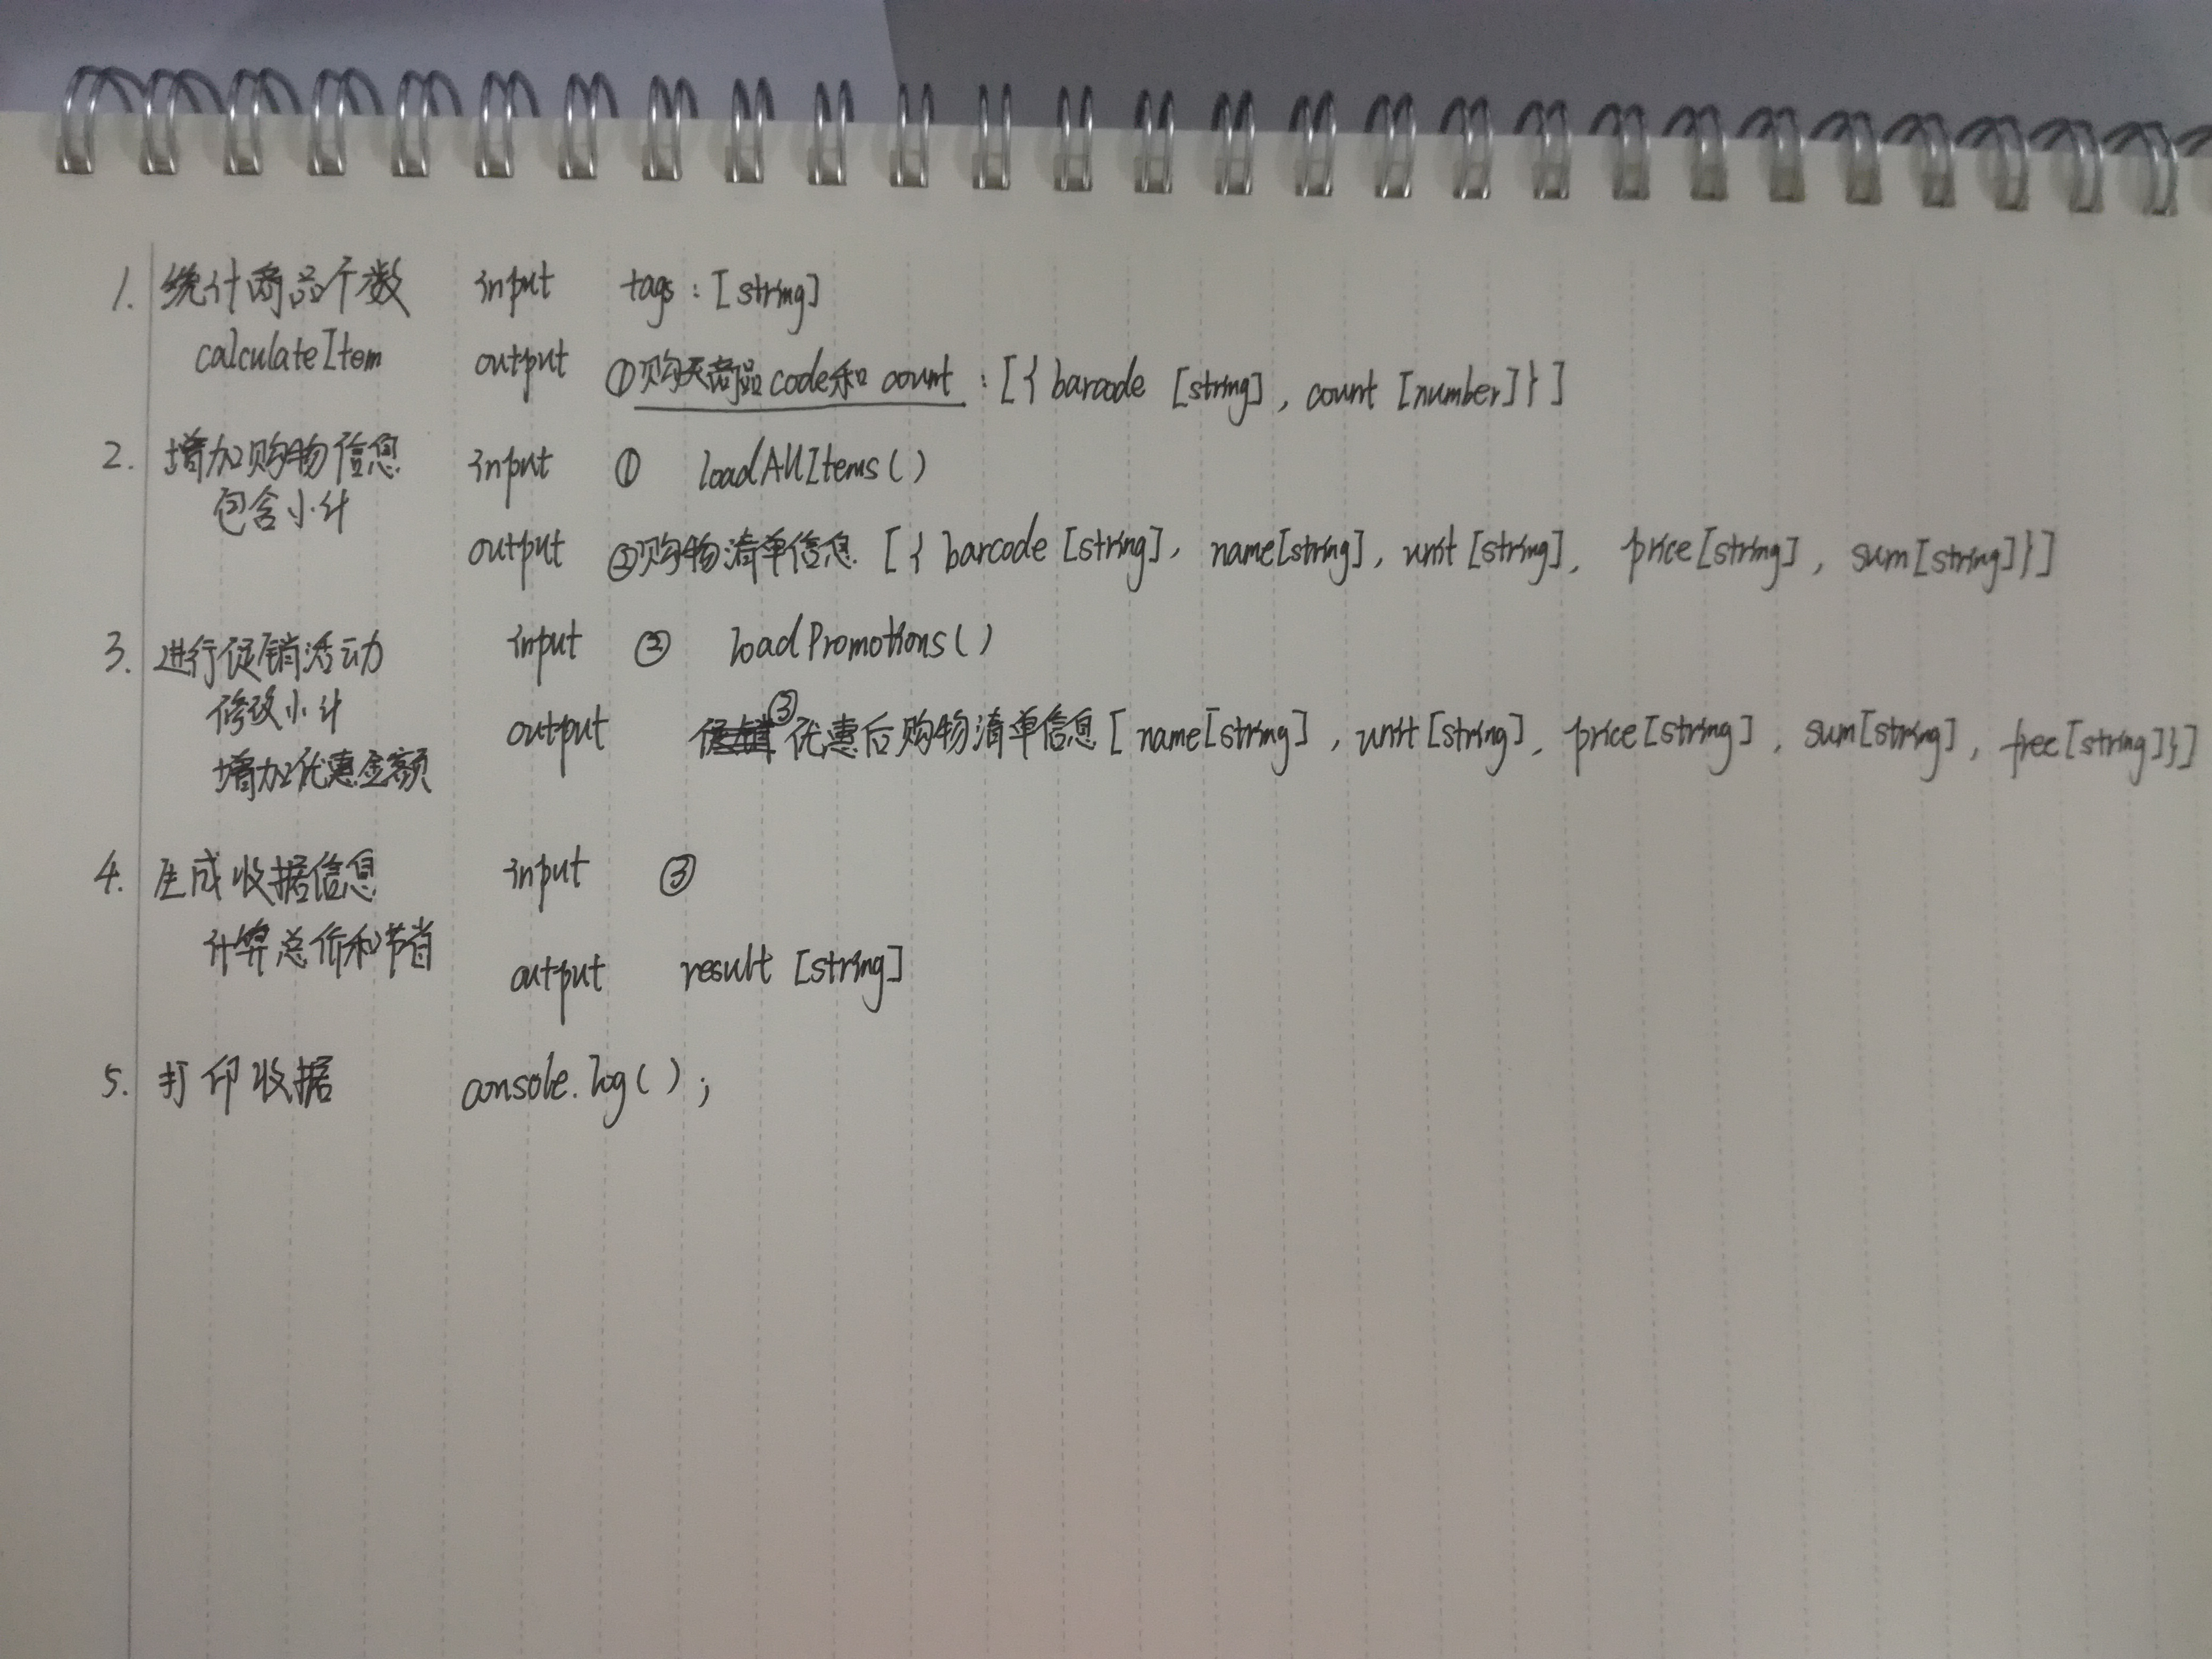 1. 统计商品个数 input tags : [string]
calculateItem output ①购买商品code和 count : [{ barcode [string], count [number]}]
2. 增加购物信息 input ① loadAllItems()
包含小计
output ②购物清单信息 [{ barcode [string], name[string], unit [string], price[string], sum[string]}]
3. 进行促销活动 input ② loadPromotions()
修改小计
output ③优惠后购物清单信息 [ name[string], unit[string], price[string], sum[string], free[string]}]
增加优惠金额
4. 生成收据信息 input ③
计算总价和节省
output result [string]
5. 打印收据 console.log();